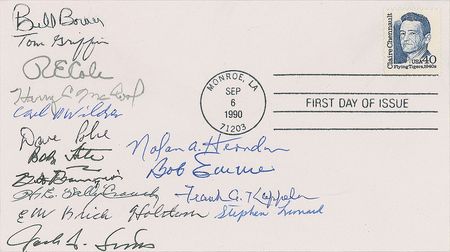 Bill Bower
Tom Griffin
R E Cole
Harry C. McCool
Carl N Wildner
Dave Pohl
Nolan A. Herndon
Bob Emmens
Horace E. "Sally" Crouch
Frank A. Kappeler
E W Holstrom
Jack A. Sims
Claire Chennault
Flying Tigers, 1940s
USA 40
MONROE, LA
SEP
6
1990
71203
FIRST DAY OF ISSUE